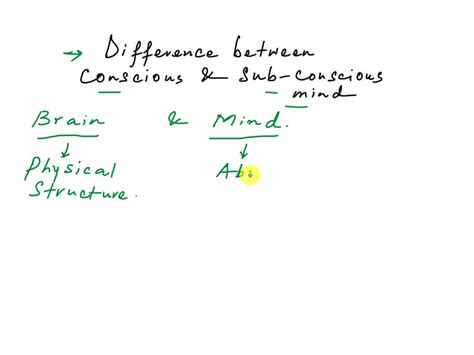 → Difference between
Conscious & Sub-conscious
mind
Brain & Mind.
↓ ↓
Physical Ab
Structure.